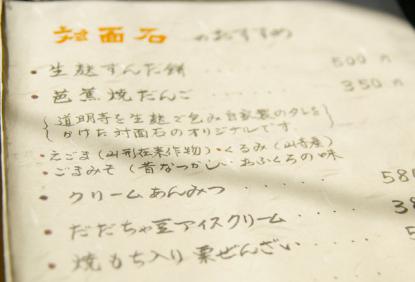 対面石 のおすすめ
・生麩ずんだ餅 ・・・ 500 円
・芭蕉焼だんご ・・・ 350 〃
{道明寺を生麩で包み自家製のタレを
かけた対面石のオリジナルです}
・えごま(山形在来作物)・くるみ(山寺産)
・ごまみそ(昔なつかし、おふくろの味
・クリームあんみつ ・・・・ 58
・だだちゃ豆アイスクリーム ・・・・ 3
・焼もち入り栗ぜんざい ・・・・